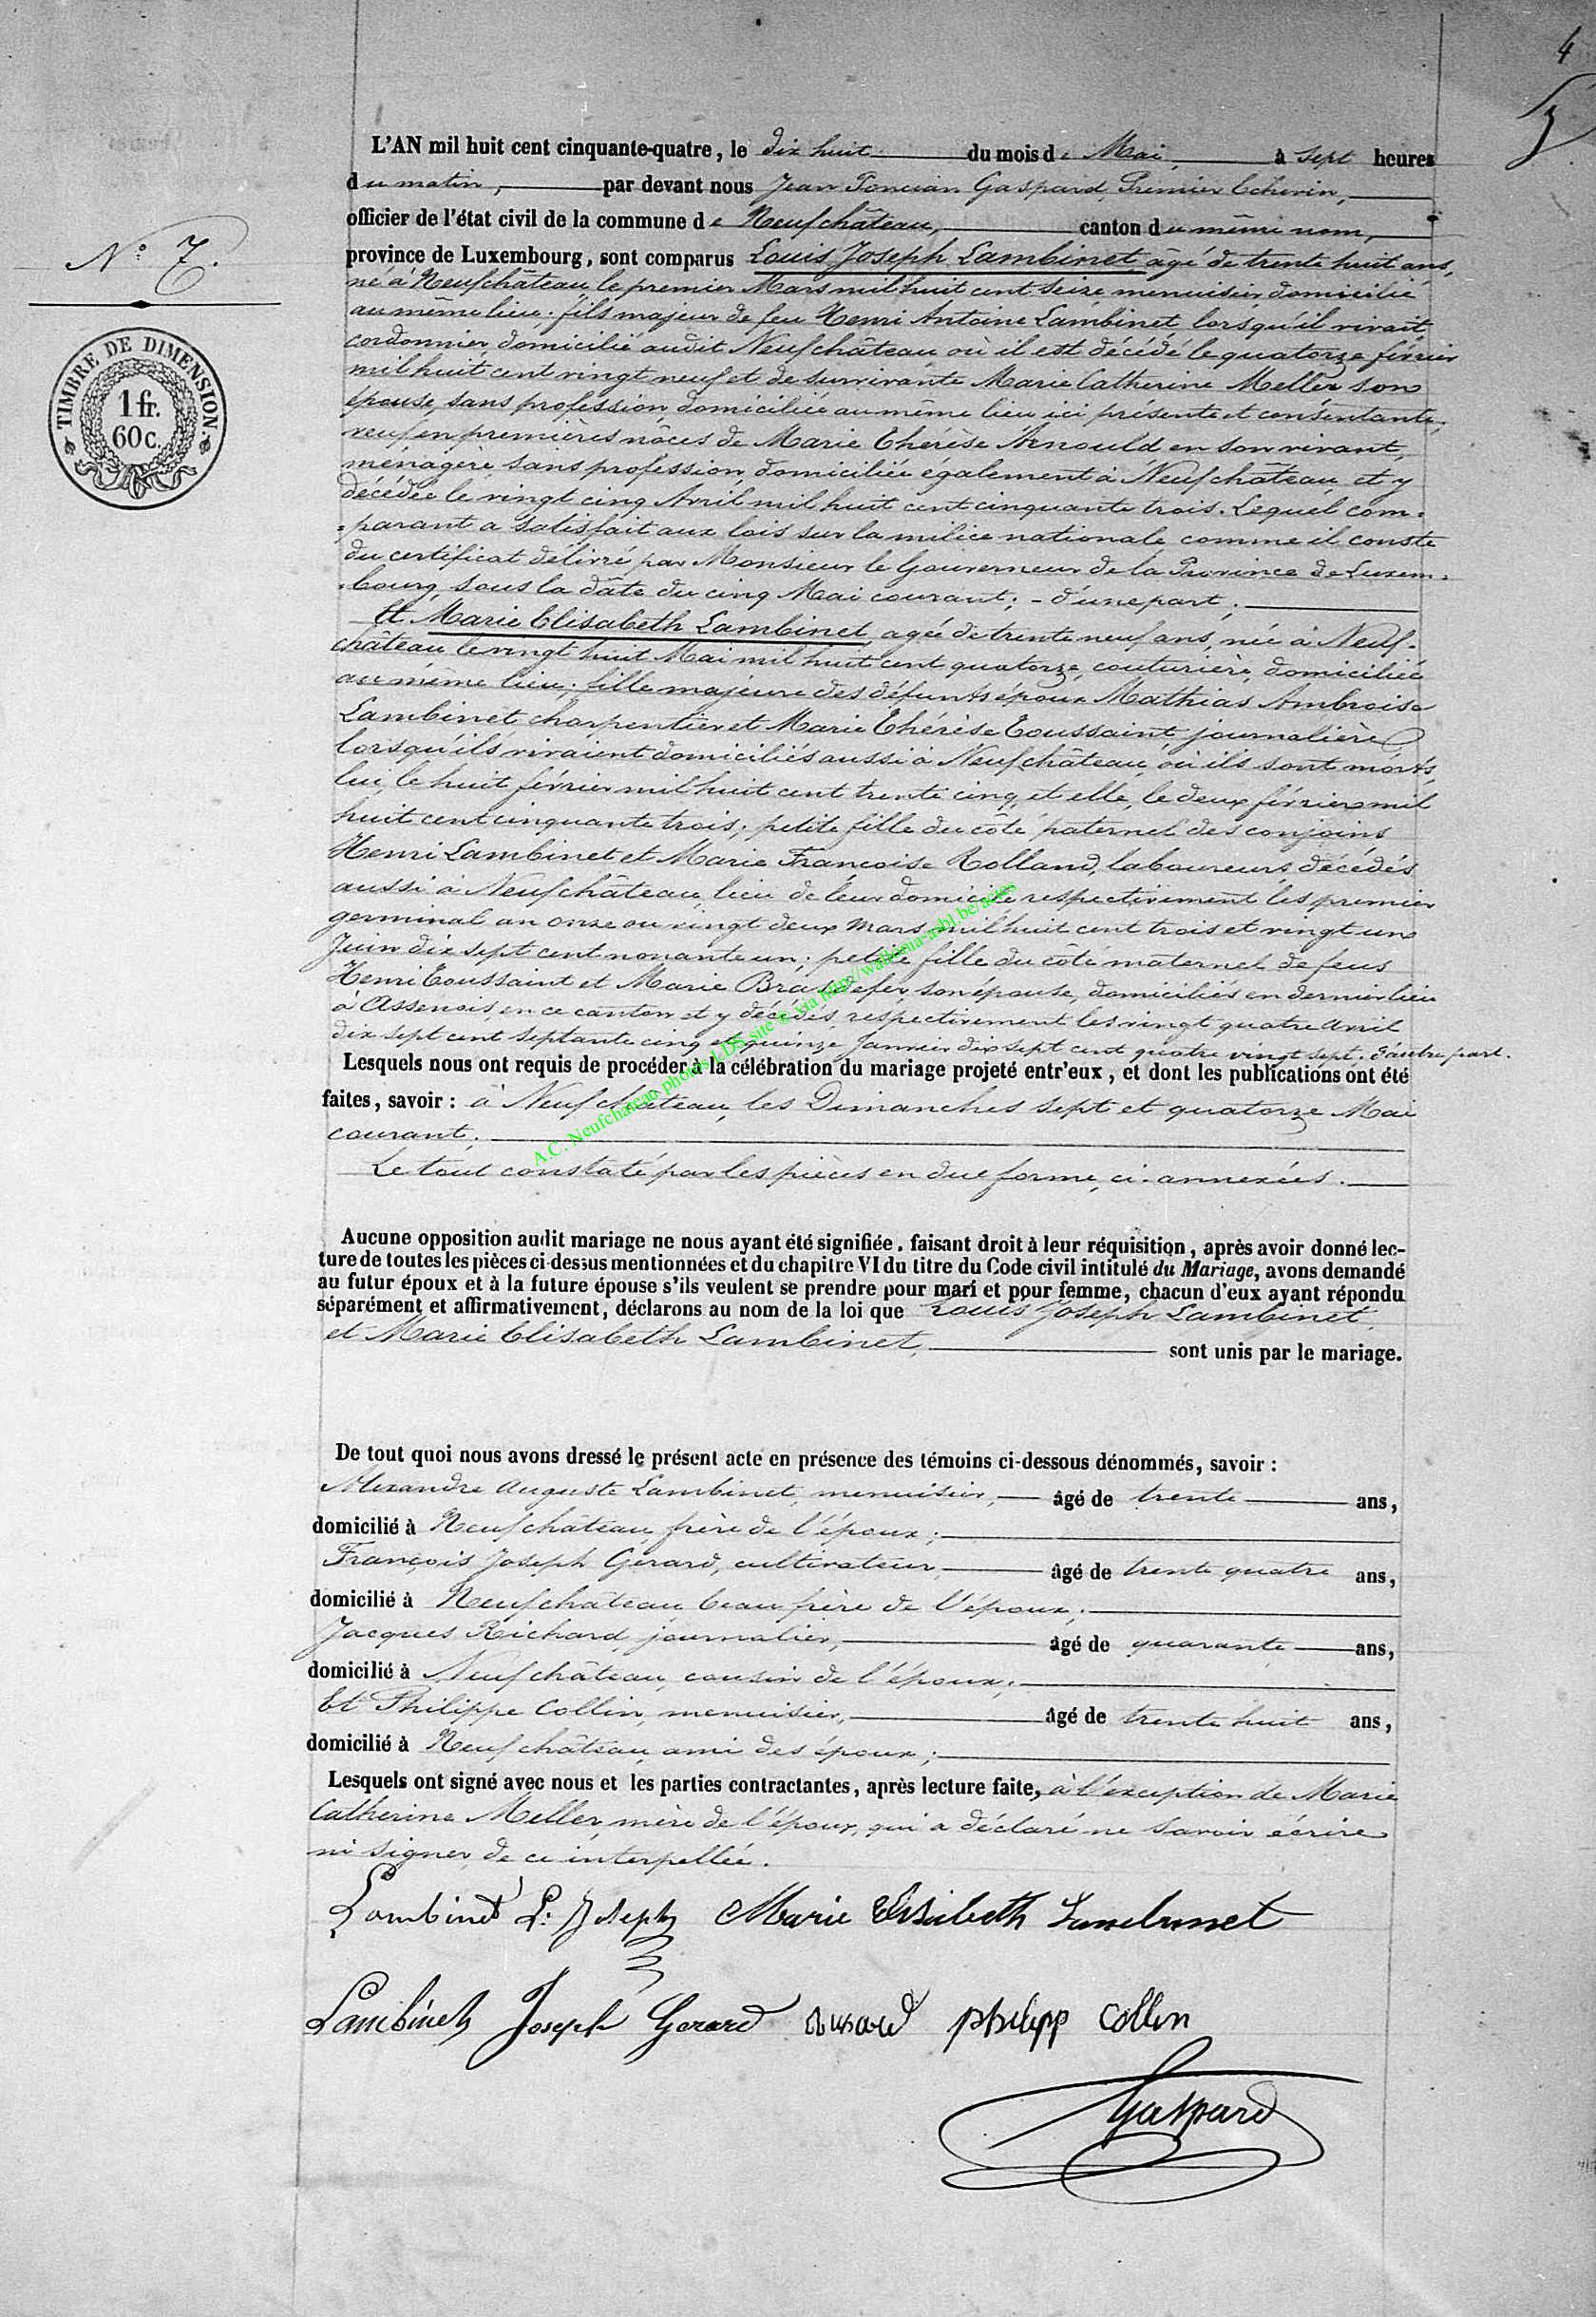 4
5
L'AN mil huit cent cinquante-quatre, le dix huit du mois de Mai, à sept heures
du matin, par devant nous Jean Poncian Gaspard, Premier Echevin,
officier de l'état civil de la commune de Neufchâteau, canton du même nom,
N.° 7.
province de Luxembourg, sont comparus Louis Joseph Lambinet, âgé de trente huit ans,
né à Neufchâteau, le premier Mars mil huit cent seize, menuisier, domicilié
au même lieu; fils majeur de feu Henri Antoine Lambinet lorsqu'il vivait
cordonnier, domicilié audit Neufchâteau où il est décédé le quatorze février
mil huit cent vingt neuf et de survivante Marie Catherine Meller son
épouse, sans profession, domiciliée au même lieu ici présente et consentante;
veuf en premières nôces de Marie Thérèse Arnould en son vivant,
ménagère, sans profession, domiciliée également à Neufchâteau, et y
décédée le vingt cinq Avril mil huit cent cinquante trois. Lequel com=
=parant a satisfait aux lois sur la milice nationale comme il conste
du certificat délivré par Monsieur le Gouverneur de la Province de Luxem=
=bourg, sous la date du cinq Mai courant; - d'une part;
Et Marie Elisabeth Lambinet, agée de trente neuf ans, née à Neuf-
château, le vingt huit Mai mil huit cent quatorze, couturière, domiciliée
au même lieu; fille majeure des défunts époux Mathias Ambroise
Lambinet charpentier et Marie Thérèse Toussaint journalière
lorsqu'ils vivaient domiciliés aussi à Neufchâteau, où ils sont morts
lui, le huit février mil huit cent trente cinq, et elle, le deux février mil
huit cent cinquante trois; petite fille du côté paternel des conjoins
Henri Lambinet et Marie Françoise Rolland, laboureurs, décédés
aussi à Neufchâteau, lieu de leur domicile respectivement les premier
germinal an onze ou vingt deux mars mil huit cent trois et vingt un
Juin dix sept cent nonante un; petite fille du côté maternel de feus
Henri Toussaint et Marie Brasdefer, son épouse, domiciliés en dernier lieu
à Assenois, en ce canton et y décédés, respectivement les vingt quatre avril
dix sept cent septante cinq et quinze Janvier dix sept cent quatre vingt sept. d'autre part.
Lesquels nous ont requis de procéder à la célébration du mariage projeté entr'eux, et dont les publications ont été
faites, savoir: à Neufchâteau, les Dimanches sept et quatorze Mai
courant;
Le tout constaté par les pièces en due forme, ci-annexées.
Aucune opposition audit mariage ne nous ayant été signifiée, faisant droit à leur réquisition, après avoir donné lec-
ture de toutes les pièces ci-dessus mentionnées et du chapitre VI du titre du Code civil intitulé du Mariage, avons demandé
au futur époux et à la future épouse s'ils veulent se prendre pour mari et pour femme, chacun d'eux ayant répondu
séparément et affirmativement, déclarons au nom de la loi que Louis Joseph Lambinet,
et Marie Elisabeth Lambinet, sont unis par le mariage.
De tout quoi nous avons dressé le présent acte en présence des témoins ci-dessous dénommés, savoir:
Alexandre Auguste Lambinet, menuisier, âgé de trente ans,
domicilié à Neufchâteau, frère de l'époux;
François Joseph Gérard, cultivateur, âgé de trente quatre ans,
domicilié à Neufchâteau beau frère de l'époux;
Jacques Richard, journalier, âgé de quarante ans,
domicilié à Neufchâteau, cousin de l'époux;
Et Philippe Collin, menuisier, âgé de trente huit ans,
domicilié à Neufchâteau ami des époux;
Lesquels ont signé avec nous et les parties contractantes, après lecture faite, à l'exception de Marie
Catherine Meller, mère de l'époux, qui a déclaré ne savoir écrire
ni signer, de ce interpellée.
Lambinet L: Joseph Marie Elisabeth Lambinet
Lambinet Joseph Gerard philipp Collin
Gaspard
TIMBRE DE DIMENSION
1 fr.
60 c.